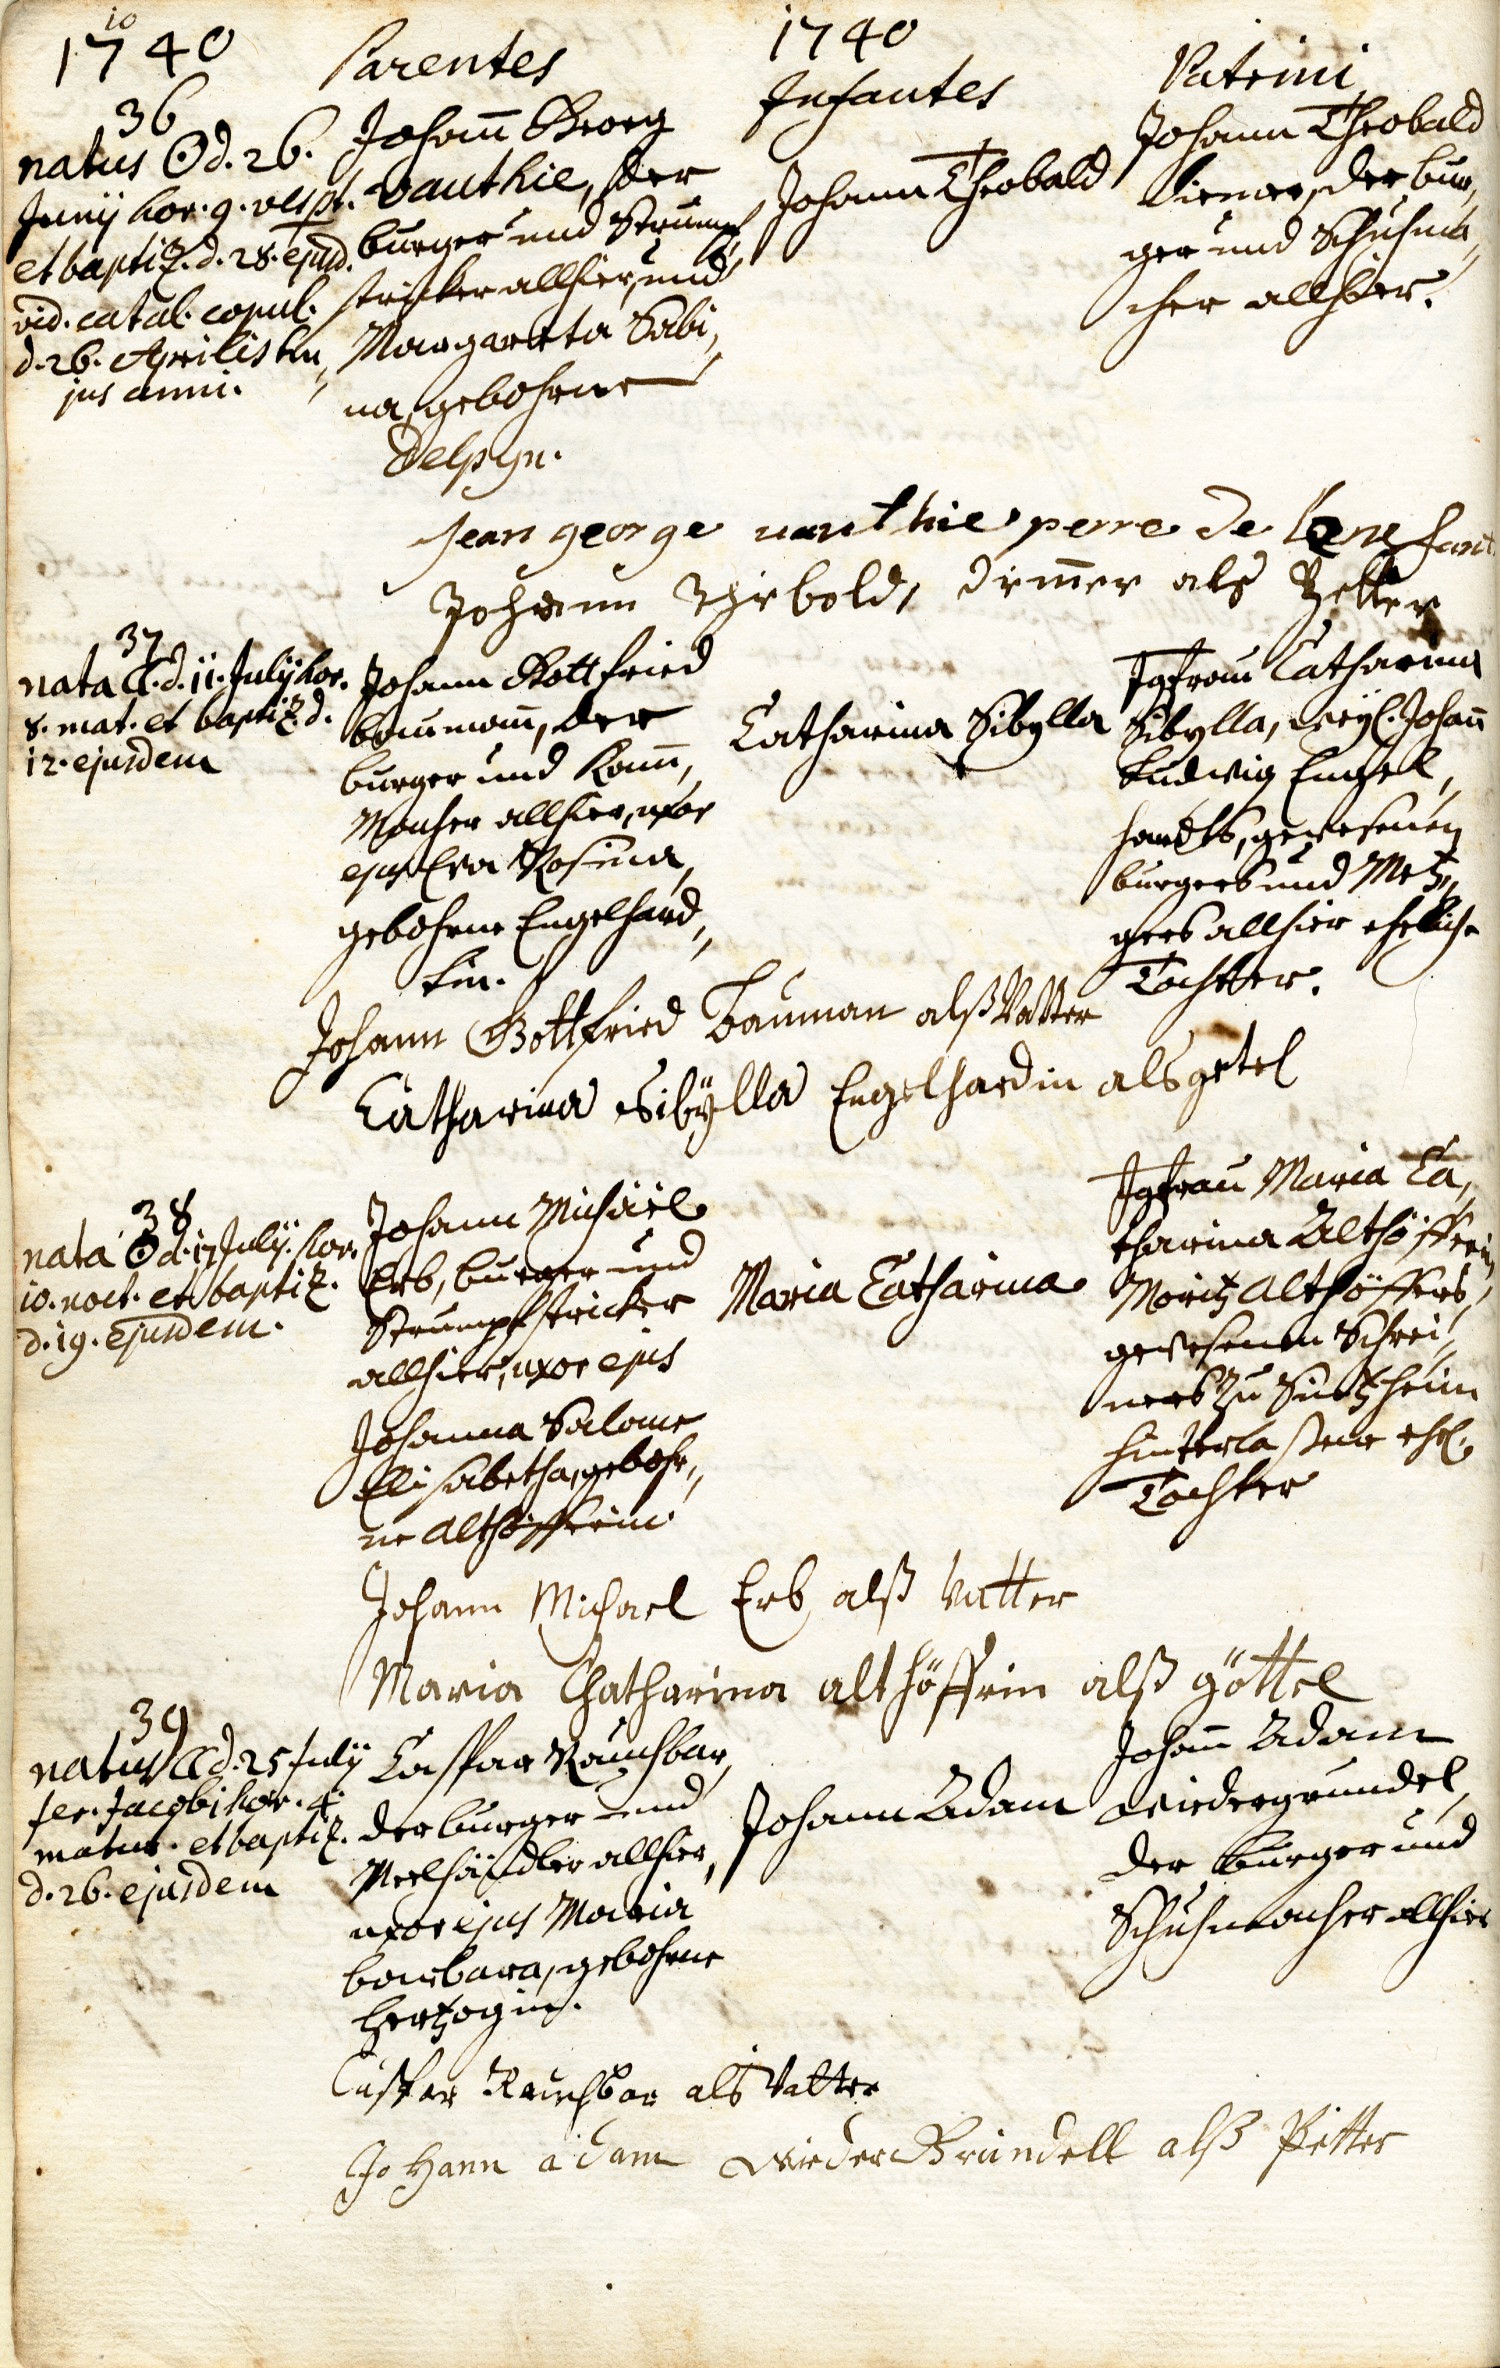 10
1740
Parentes
1740
Infantes
Patrini
36
natus ☉ d. 26.
Junij hor. 9. vespt.
et baptiz. d. 28. ejusd.
vid. catal. copul.
d. 26. Aprilis hu„
jus anni.
Johann Georg
Vauthie, der
burger und Strumpf„
stricker allhier, und
Margaretta Sabi„
na, gebohrne
Johann Theobald
Johann Theobald
Diemer, der bur„
ger und Schuhma„
cher allhier.
Jean george vauthie perre de lenfant
Johann Thebold, Dimer als Petter
37
nata ☾. d. 11. Julij hor.
8. mat. et baptiz. d.
12. ejusdem
Johann Gottfried
baumann, der
burger und Kamm„
Macher allhier, uxor
ejus Eva Rosina,
gebohrne Engelhard„
tin.
Catharina Sibylla
Jgfrau Catharina
Sibylla, weyl. Johann
Ludwig Engel„
hardts, gewesenen
burgers und Metz„
gers allhier eheliche
Tochter.
Johann Gottfried Bauman alß Vatter
Catharina Sibÿlla Engelhardin als getel
38
nata ☉ d. 17 Julij. hor.
10. noct. et baptiz.
d. 19. ejusdem.
Johann Michäel
Erb, burger und
Strumpfstricker
allhier, uxor ejus
Johanna Salome
Elisabetha, gebohr„
ne Althöfferin.
Maria Catharina
Jgfrau Maria Ca„
tharina Althöfferin,
Moritz Althöffers,
gewesenen Schrei„
ners zu Suntzheim
hinterlaßene ehel.
Tochter
Johann Michael Erb alß Vatter
Maria Chatharina althöffrin alß göttel
39
natus ☾ d. 25 July
fer. Jacobi hor. 4.
matut. et baptiz.
d. 26. ejusdem
Caspar Rauchbar,
der burger und
Meelhändler allhier,
uxor ejus Maria
barbara, gebohrne
Hertzogin.
Johann Adam
Johann Adam
Wiedergrundel,
der burger und
Schuhmacher allhier
Caspar Rauchbar als Vatter
Johann adam WiederGrundell alß Petter